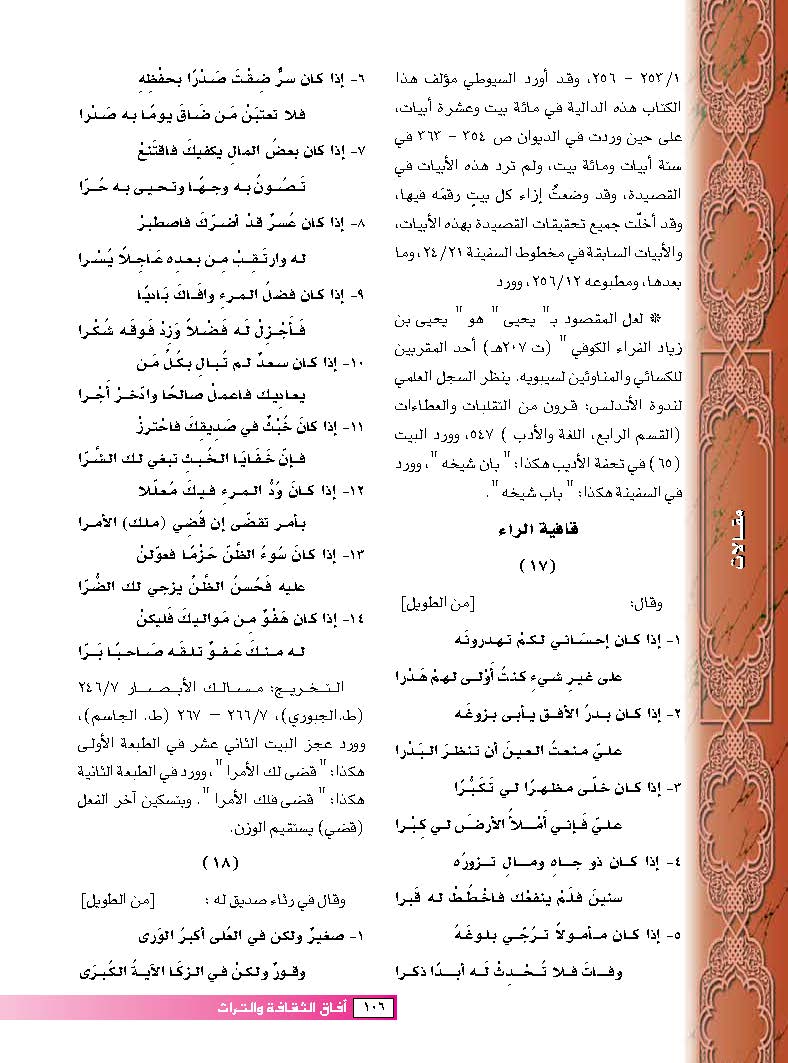 ٢٥٣/١ – ٢٥٦، وقد أورد السيوطي مؤلف هذا
الكتاب هذه الدالية في مائة بيت وعشرة أبيات،
على حين وردت في الديوان ص ٣٥٤ – ٣٦٣ في
ستة أبيات ومائة بيت، ولم ترد هذه الأبيات في
القصيدة، وقد وضعتُ إزاء كل بيتٍ رقمَه فيها،
وقد أخلّت جميع تحقيقات القصيدة بهذه الأبيات،
والأبيات السابقة في مخطوط السفينة ٢٤/٢١، وما
بعدها، ومطبوعه ٢٥٦/١٢، وورد
* لعل المقصود بـ" يحيى " هو " يحيى بن
زياد الفراء الكوفي " (ت ٢٠٧هـ) أحد المقربين
للكسائي والمناوئين لسيبويه. ينظر السجل العلمي
لندوة الأندلس: قرون من التقلبات والعطاءات
(القسم الرابع، اللغة والأدب ) ٥٤٧، وورد البيت
(٦٥) في تحفة الأديب هكذا: " بان شيخه "، وورد
في السفينة هكذا: " باب شيخه ".
قافية الراء
(١٧)
وقال: [من الطويل]
١- إذا كان إحسَاني لكمْ تهدرونَه
على غيرِ شيءٍ كنتُ أَوْلى لهمْ هَدْرا
٢- إذا كان بدرُ الأفق يأبى بزوغَه
عليّ منعتُ العينَ أن تنظرَ البَدْرا
٣- إذا كان خلّى مظهرًا لي تَكَبُّرًا
عليّ فَإني أَمْلأُ الأرضَ لي كِبْرا
٤- إذا كان ذو جاهٍ ومالٍ تزورُه
سنينَ فلَمْ ينفعْك فاخْطُطْ له قَبرا
٥- إذا كان مأمولاً تَرَجّي بلوغَهُ
وفاتَ فلا تُحْدِثْ لَه أبدًا ذكرا
٦- إذا كان سرٌّ ضِقْتَ صَدْرًا بحفْظِهِ
فلا تعتبَنْ مَن ضَاقَ يومًا به صَدْرا
٧- إذا كان بعضُ المالِ يكفيكَ فاقتَنعْ
تَصُونُ به وجهًا وتحيى به حُرّا
٨- إذا كان عُسرٌ قدْ أضرّكَ فاصطبرْ
له وارتَقِبْ مِن بعدِه عَاجِلاً يُسْرا
٩- إذا كان فضلُ المرءِ وافَاكَ بَاديًا
فَأَجْزِلْ لَه فَضْلاً وَزِدْ فَوقَه شُكْرا
١٠- إذا كان سعدٌ لم تُبالِ بكُلِّ مَن
يعاديك فاعملْ صالحًا وادّخرْ أَجْرا
١١- إذا كانَ خُبْثٌ في صَدِيقِكَ فاحْترزْ
فإنّ خَفَايَا الخُبثِ تبغي لك الشَّرّا
١٢- إذا كانَ وُدُّ المرءِ فيكَ مُعلّلا
بأمرٍ تقضّى إن قُضِي (ملك) الأمرا
١٣- إذا كانَ سُوءُ الظّنّ حَزْمًا فعوّلنْ
عليه فَحُسنُ الظّنّ يزجي لك الضُّرّا
١٤- إذا كان هَفْوٌ مِن مَواليكَ فَليكنْ
له منكَ عَفوٌ تلقَه صَاحبًا بَرّا
التخريج: مسالك الأبصار ٢٤٦/٧
(ط.الجبوري)، ٢٦٦/٧ – ٢٦٧ (ط. الجاسم)،
وورد عجز البيت الثاني عشر في الطبعة الأولى
هكذا: " قضى لك الأمرا "، وورد في الطبعة الثانية
هكذا: " قضى فلك الأمرا ". وبتسكين آخر الفعل
(قضي) يستقيم الوزن.
(١٨)
وقال في رثاء صديق له : [من الطويل]
١- صغيرٌ ولكن في العُلى أكبرُ الوَرى
وقورٌ ولكنْ في الزكَا الآيةُ الكُبرَى
مقالات
١٠٦ آفاق الثقافة والتراث